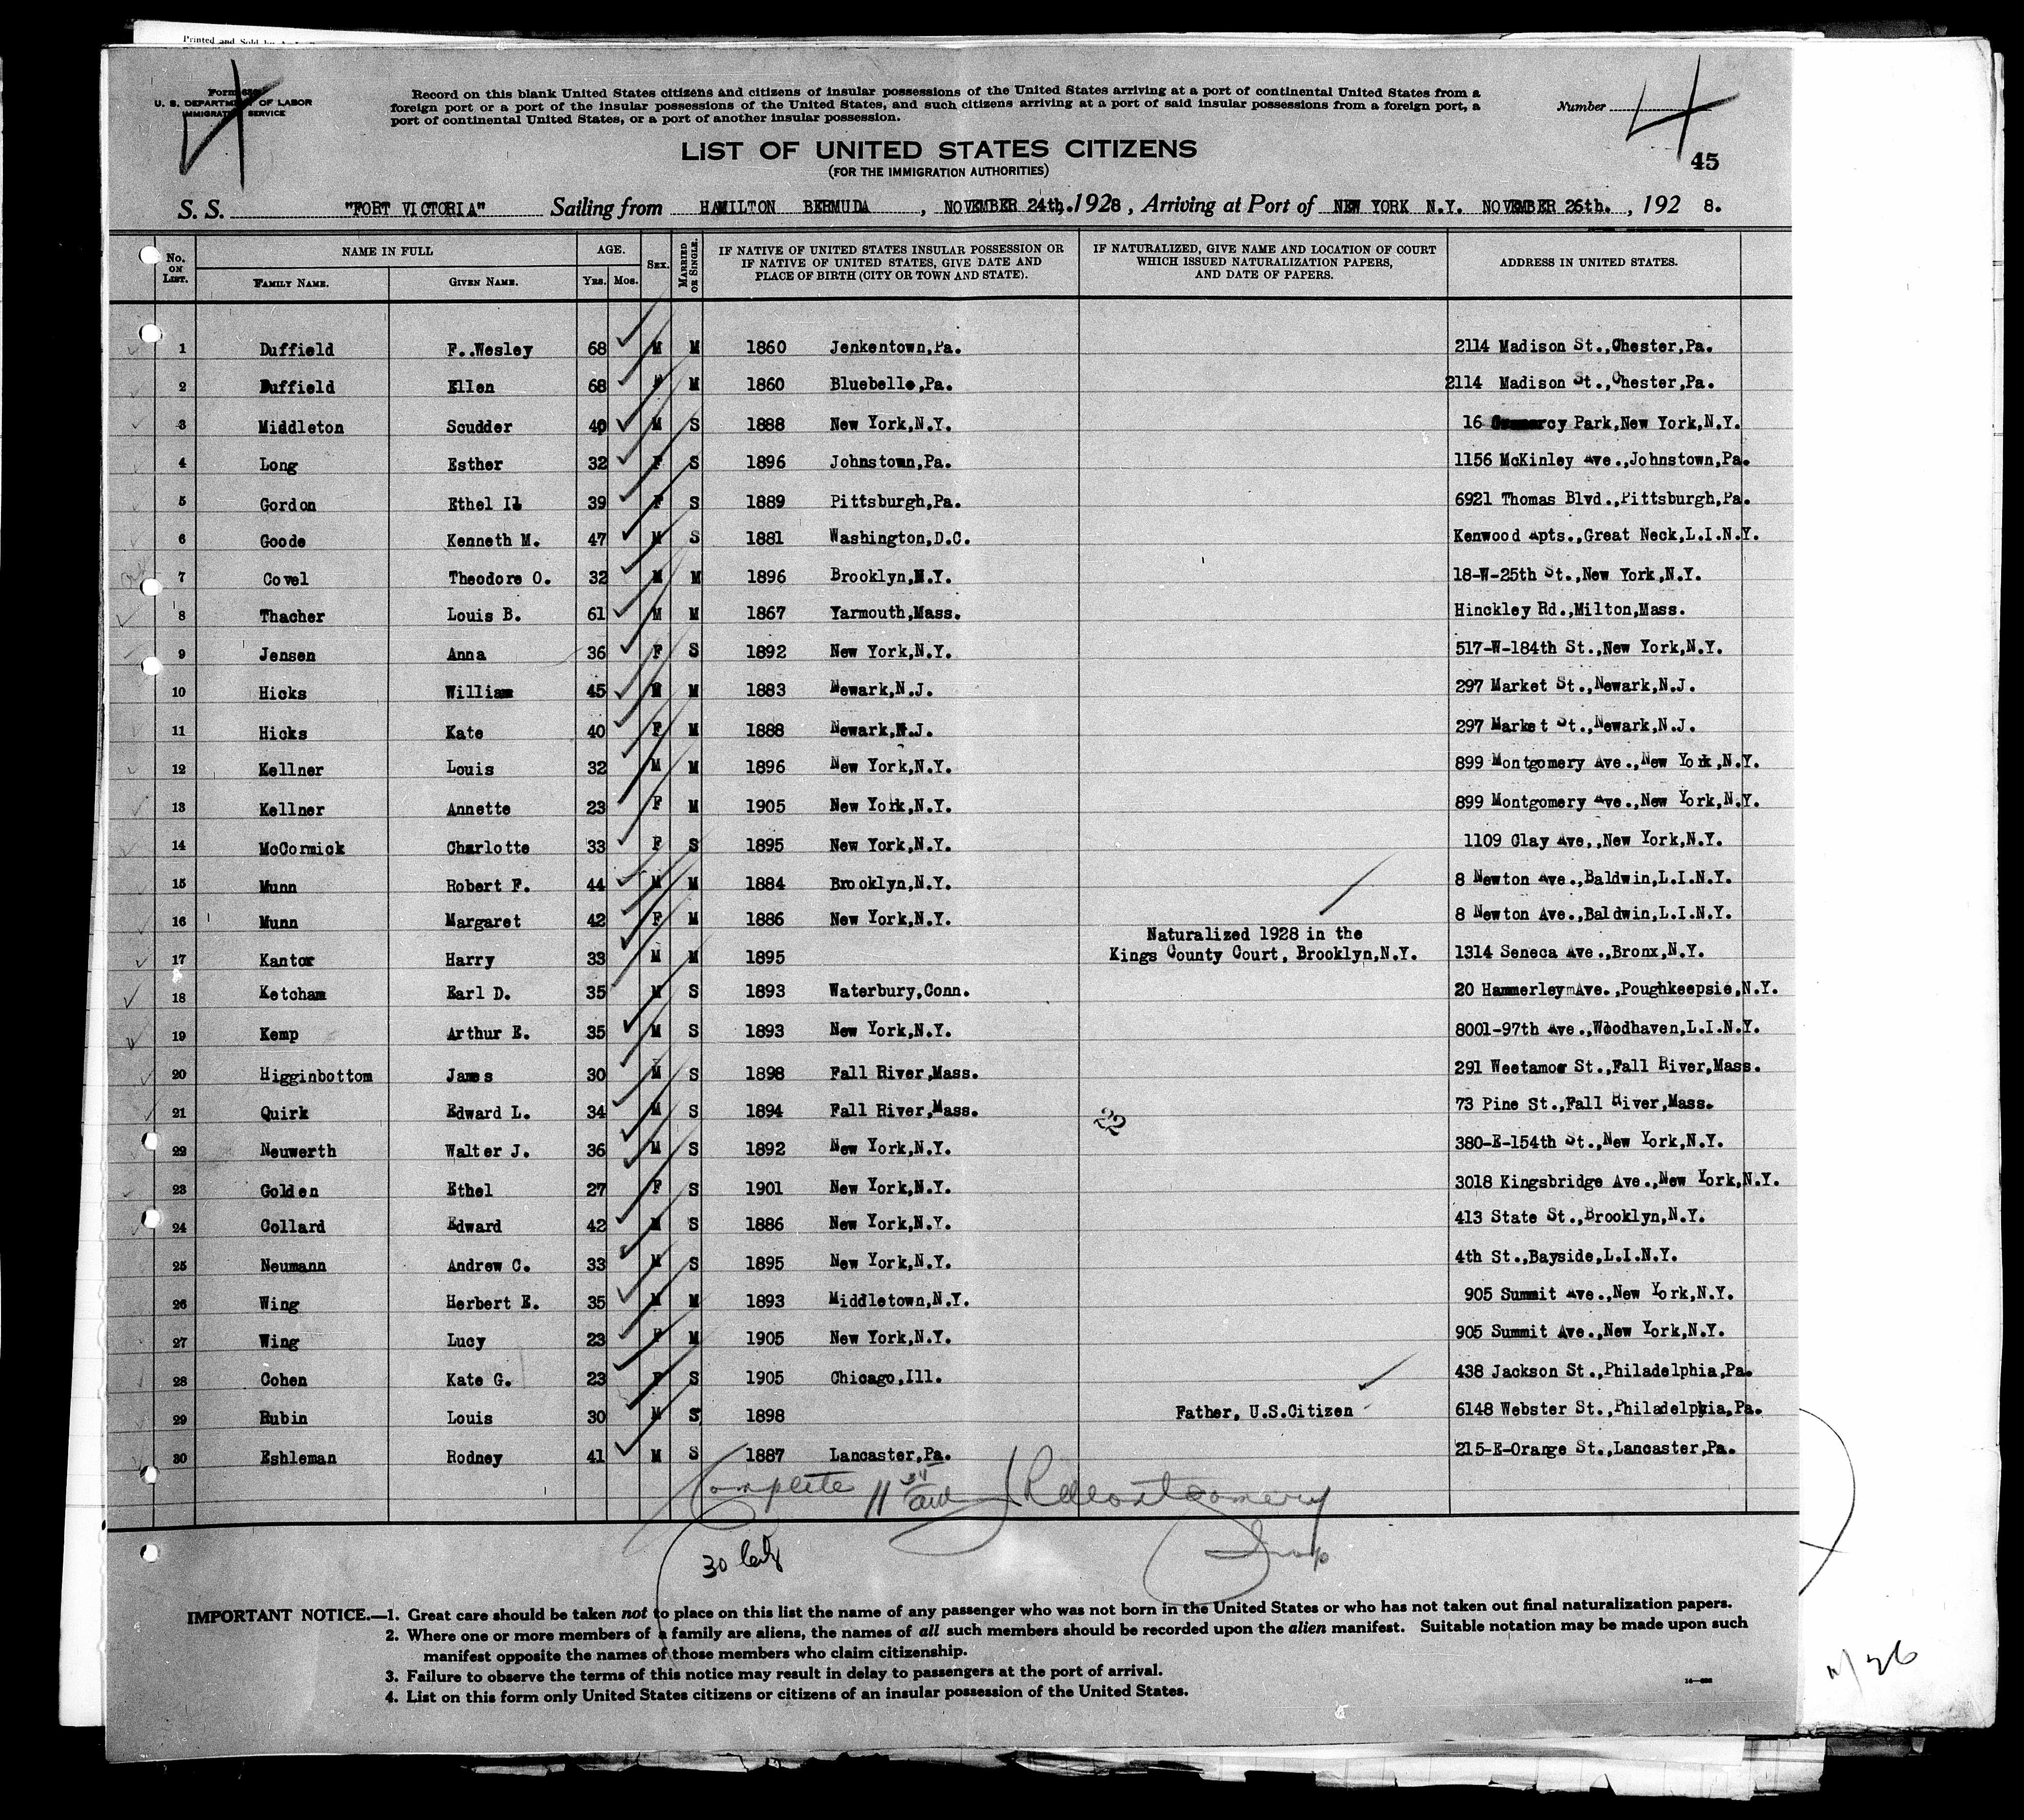 Printed and Sold by
Form 630
U. S. DEPARTMENT OF LABOR
IMMIGRATION SERVICE
Record on this blank United States citizens and citizens of insular possessions of the United States arriving at a port of continental United States from a
foreign port or a port of the insular possessions of the United States, and such citizens arriving at a port of said insular possessions from a foreign port, a
port of continental United States, or a port of another insular possession.
Number 4
4
45
LIST OF UNITED STATES CITIZENS
(FOR THE IMMIGRATION AUTHORITIES)
S. S. "FORT VICTORIA" Sailing from HAMILTON BERMUDA, NOVEMBER 24th, 1928, Arriving at Port of NEW YORK N.Y. NOVEMBER 26th., 192 8.
No. ON LIST. NAME IN FULL FAMILY NAME. GIVEN NAME. AGE. YRS. MOS. SEX. MARRIED OR SINGLE. IF NATIVE OF UNITED STATES INSULAR POSSESSION OR IF NATIVE OF UNITED STATES, GIVE DATE AND PLACE OF BIRTH (CITY OR TOWN AND STATE). IF NATURALIZED, GIVE NAME AND LOCATION OF COURT WHICH ISSUED NATURALIZATION PAPERS, AND DATE OF PAPERS. ADDRESS IN UNITED STATES.
1 Duffield F..Wesley 68 M M 1860 Jenkentown,Pa. 2114 Madison St.,Chester,Pa.
2 Duffield Ellen 68 F M 1860 Bluebelle,Pa. 2114 Madison St.,Chester,Pa.
3 Middleton Scudder 40 M S 1888 New York,N.Y. 16 Park,New York,N.Y.
4 Long Esther 32 F S 1896 Johnstown,Pa. 1156 McKinley Ave.,Johnstown,Pa.
5 Gordon Ethel 39 F S 1889 Pittsburgh,Pa. 6921 Thomas Blvd.,Pittsburgh,Pa.
6 Goode Kenneth M. 47 M S 1881 Washington,D.C. Kenwood Apts.,Great Neck,L.I.N.Y.
7 Covel Theodore O. 32 M M 1896 Brooklyn,N.Y. 18-W-25th St.,New York,N.Y.
8 Thacher Louis B. 61 M M 1867 Yarmouth,Mass. Hinckley Rd.,Milton,Mass.
9 Jensen Anna 36 F S 1892 New York,N.Y. 517-W-184th St.,New York,N.Y.
10 Hicks William 45 M M 1883 Newark,N.J. 297 Market St.,Newark,N.J.
11 Hicks Kate 40 F M 1888 Newark,N.J. 297 Market St.,Newark,N.J.
12 Kellner Louis 32 M M 1896 New York,N.Y. 899 Montgomery Ave.,New York,N.Y.
13 Kellner Annette 23 F M 1905 New York,N.Y. 899 Montgomery Ave.,New York,N.Y.
14 McCormick Charlotte 33 F S 1895 New York,N.Y. 1109 Clay Ave,,New York,N.Y.
15 Munn Robert F. 44 M M 1884 Brooklyn,N.Y. 8 Newton Ave.,Baldwin,L.I.N.Y.
16 Munn Margaret 42 F M 1886 New York,N.Y. 8 Newton Ave.,Baldwin,L.I.N.Y.
Naturalized 1928 in the
17 Kantor Harry 33 M M 1895 Kings County Court, Brooklyn,N.Y. 1314 Seneca Ave.,Bronx,N.Y.
18 Ketcham Earl D. 35 M S 1893 Waterbury,Conn. 20 Hammerley Ave.,Poughkeepsie,N.Y.
19 Kemp Arthur E. 35 M S 1893 New York,N.Y. 8001-97th Ave.,Woodhaven,L.I.N.Y.
20 Higginbottom James 30 M S 1898 Fall River,Mass. 291 Weetamoe St.,Fall River,Mass.
21 Quirk Edward L. 34 M S 1894 Fall River,Mass. 22 73 Pine St.,Fall River,Mass.
22 Neuwerth Walter J. 36 M S 1892 New York,N.Y. 380-E-154th St.,New York,N.Y.
23 Golden Ethel 27 F S 1901 New York,N.Y. 3018 Kingsbridge Ave.,New York,N.Y.
24 Collard Edward 42 M S 1886 New York,N.Y. 413 State St.,Brooklyn,N.Y.
25 Neumann Andrew C. 33 M S 1895 New York,N.Y. 4th St.,Bayside,L.I.N.Y.
26 Wing Herbert E. 35 M M 1893 Middletown,N.Y. 905 Summit Ave.,New York,N.Y.
27 Wing Lucy 23 F M 1905 New York,N.Y. 905 Summit Ave.,New York,N.Y.
28 Cohen Kate G. 23 F S 1905 Chicago,Ill. 438 Jackson St.,Philadelphia,Pa.
29 Rubin Louis 30 M S 1898 Father, U.S.Citizen 6148 Webster St.,Philadelphia,Pa.
30 Eshleman Rodney 41 M S 1887 Lancaster,Pa. 215-E-Orange St.,Lancaster,Pa.
Complete Montgomery
30
Insp
IMPORTANT NOTICE.—1. Great care should be taken not to place on this list the name of any passenger who was not born in the United States or who has not taken out final naturalization papers.
2. Where one or more members of a family are aliens, the names of all such members should be recorded upon the alien manifest. Suitable notation may be made upon such
manifest opposite the names of those members who claim citizenship.
3. Failure to observe the terms of this notice may result in delay to passengers at the port of arrival.
4. List on this form only United States citizens or citizens of an insular possession of the United States.
11/26